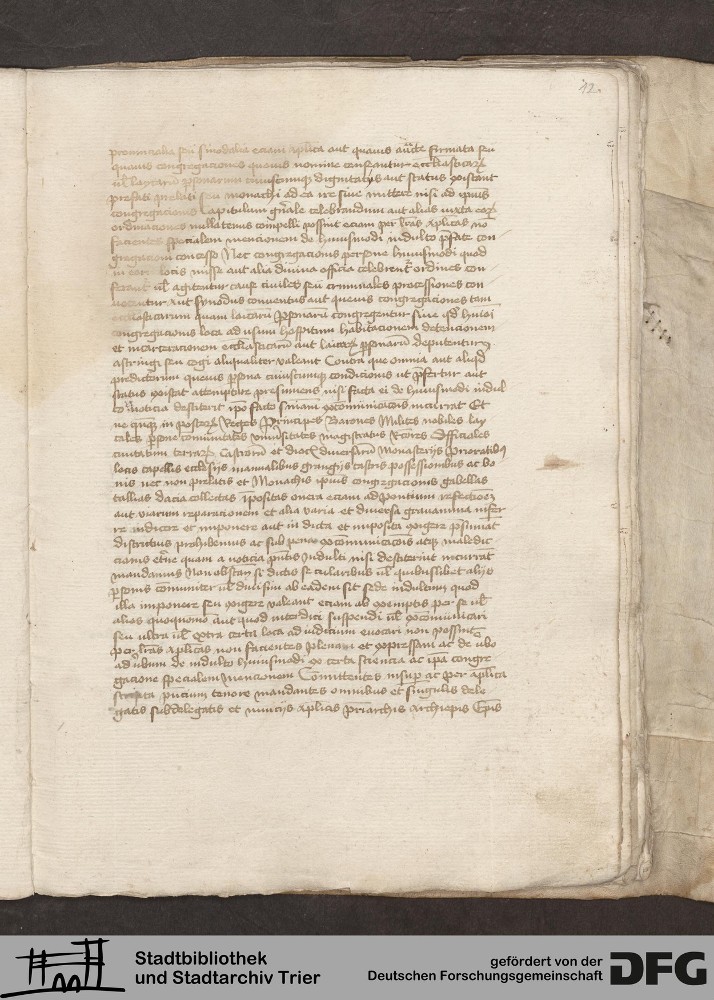 42.
provincialia seu sinodalia eciam aplica aut quavis firmata seu
quavis congregaciones quovis nomine censeantur ecclesiasticar
ul laycaru psonarum cuiuscumqz dignitatis aut status existant
prefati prelati seu monachi ad ea ire sive mittere nisi ad ipius
congregacionis Capitulum gnale celebrandum aut alias iuxta eor
ordinaciones nullatenus compelli possint eciam per lras aplicas no
facientes specialem mencionem de huiusmodi indulto pfate con
gregacioni concesso Nec congregacionis persone huiusmodi quod
in locis misse aut alia divina officia celebrent ordines con
ferant ul agitentur cause civiles seu criminales processiones con
vocentur aut synodus conventus aut quevis congregaciones tam
ecclasticarum quam laicaru psonaru congregentur sive qd huioi
congregacionis loca ad usum hospitum habitacionem detencionem
et incarceracionem ecclasticaru aut laicar psonaru deputentur
astringi seu cogi aliqualiter valeant Contra que omnia aut aliqd
predictorum quevis psona cuiuscumqz condicionis ut pfertur aut
status existat attemptare presumens nisi facta ei de huiusmodi indul
to noticia destiterit ipo facto sniam excominicacois incurrat Et
ne quiqz in poster Reges Principes Barones Milites nobiles lay
cales psone comunitates universitates magistratus Rectores Officiales
civitatum terrar Castroru et dioc diversaru Monasterijs Prioratibz
locis capellis ecclesijs manualibus grangijs castris possessionibus ac bo
nis nec non prelatis et Monachis ipius congregacionis gabellas
tallias dacia collectas ipositas onera eciam ad pontium refectioem
aut viarum reparacionem et alia varia et diversa gravamina infer
re indicere et imponere aut in dicta et imposita exigere psumat
districtius prohibemus ac sub pena excommunicacois atqz maledic
cionis etne quam a noticia pntis indulti nisi destiterint incurrat
mandamus Non obstan si dictis secularibus ul quibuslibet alijs
psonis comuniter ul divisim ab eadem sit sede indultum quod
illa imponere seu exigere valeant eciam ab exemptis per se ul
alios quoquomo aut quod interdici suspendi ul excomunicari
seu ultra ul extra certa loca ad iudicium evocari non possint
per lras aplicas non facientes plenam et expressam ac de vbo
ad vbum de indulto huiusmodi ex certa sciencia ac ipa congre
gacione specialem mencionem Comittentes insup ac per aplica
scripta pncium tenore mandantes omnibus et singulis dele
gatis subdelegatis et nuncijs aplicis Priarchis Archiepis Epis
Stadtbibliothek
und Stadtarchiv Trier
gefördert von der
Deutschen Forschungsgemeinschaft
DFG